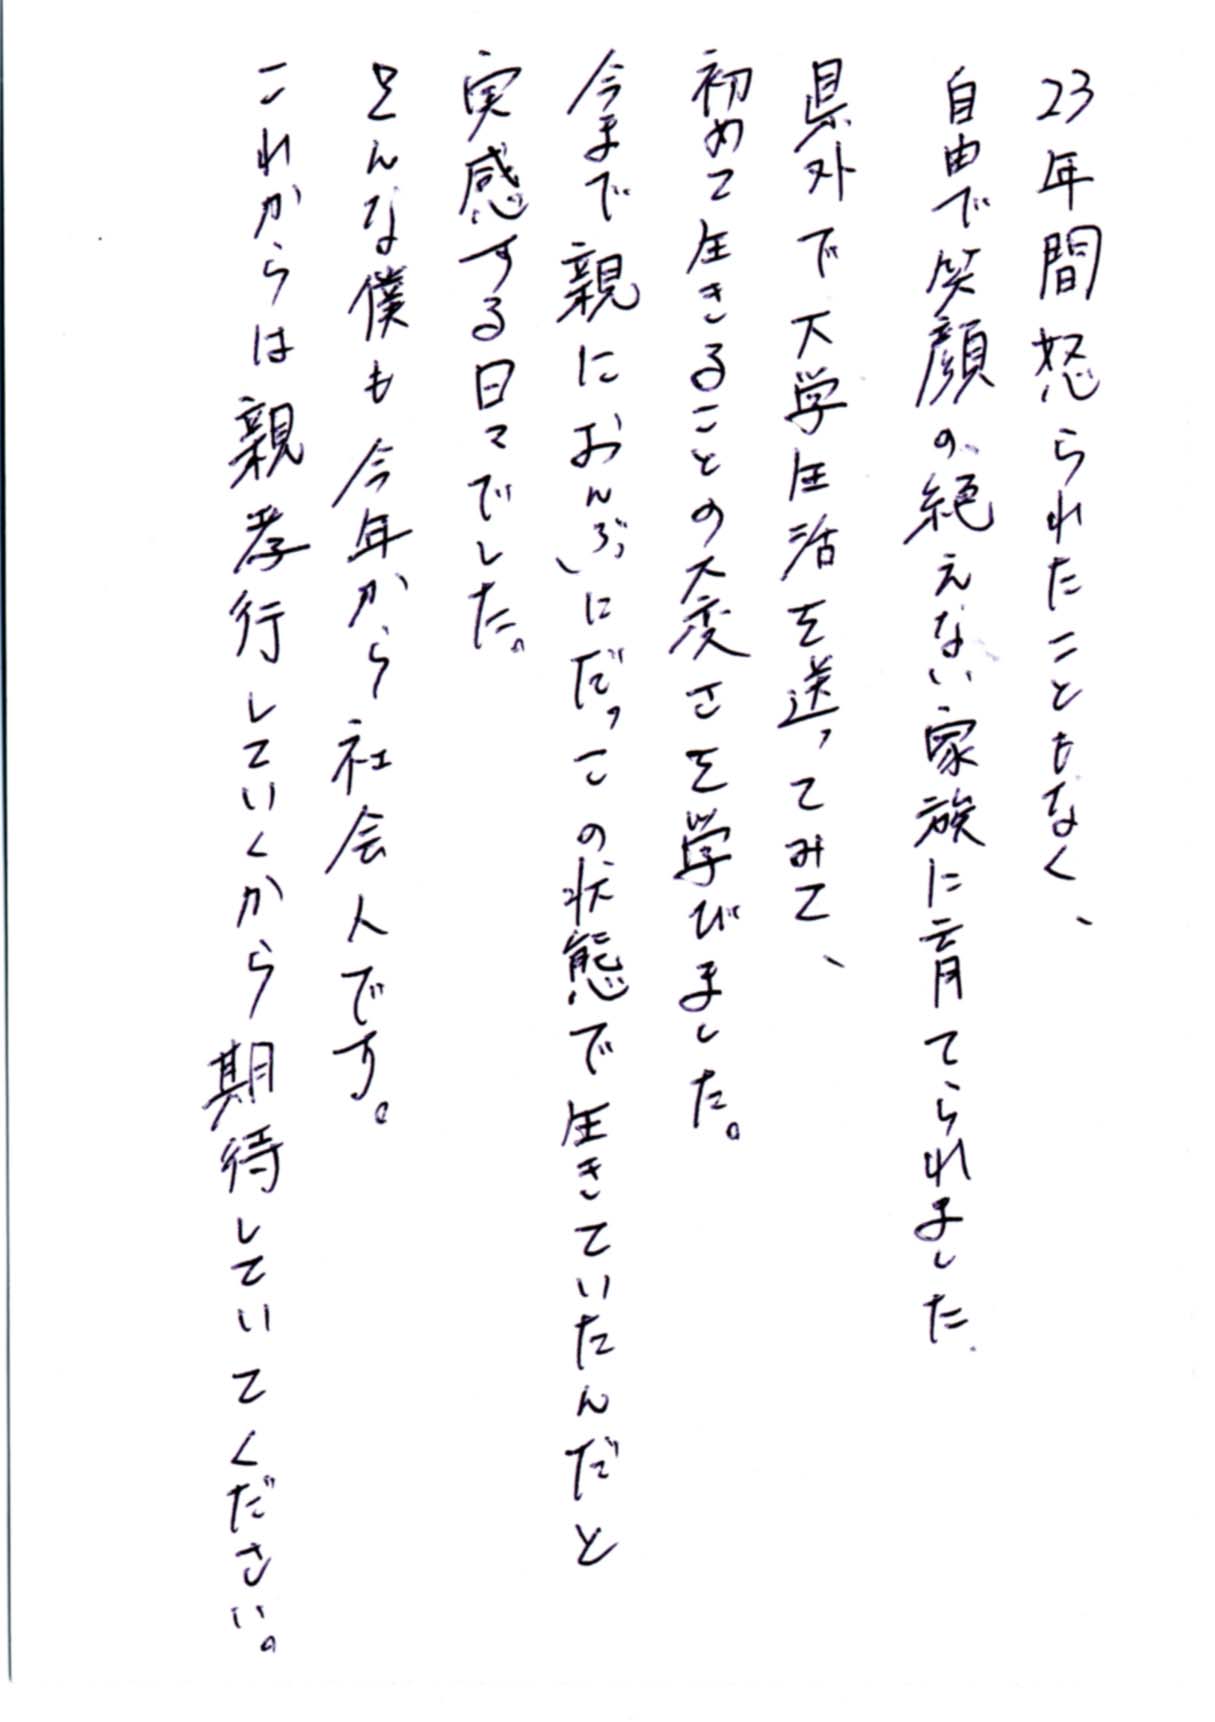 23年間怒られたこともなく、
自由で笑顔の絶えない家族に育てられました.
県外で大学生活を送ってみて、
初めて生きることの大変さを学びました。
今まで親におんぶにだっこの状態で生きていたんだと
実感する日々でした。
そんな僕も今年から社会人です。
これからは親孝行していくから期待していてください。